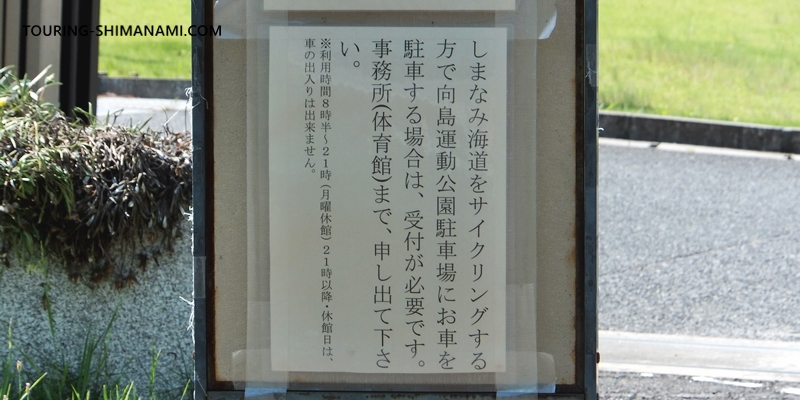 TOURING-SHIMANAMI.COM
しまなみ海道をサイクリングする
方で向島運動公園駐車場にお車を
駐車する場合は、受付が必要です。
事務所(体育館)まで、申し出て下さ
い。
※利用時間8時半～21時(月曜休館)21時以降・休館日は、
車の出入りは出来ません。